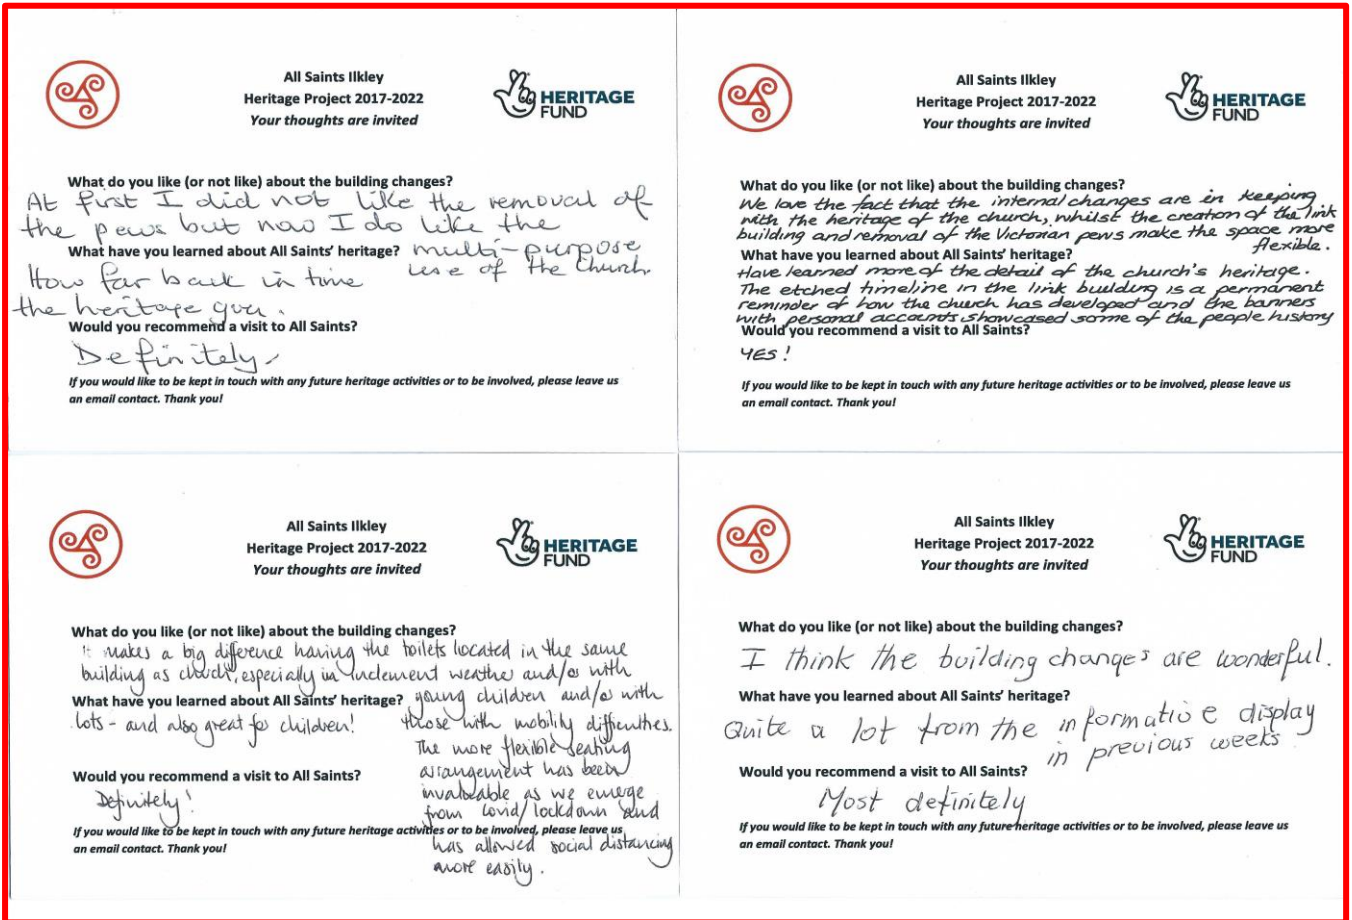 All Saints Ilkley
Heritage Project 2017-2022
Your thoughts are invited
HERITAGE
FUND
What do you like (or not like) about the building changes?
At first I did not like the removal of
the pews but now I do like the
multi-purpose
use of the Church
What have you learned about All Saints' heritage?
How far back in time
the heritage goes.
Would you recommend a visit to All Saints?
Definitely
If you would like to be kept in touch with any future heritage activities or to be involved, please leave us
an email contact. Thank you!
All Saints Ilkley
Heritage Project 2017-2022
Your thoughts are invited
HERITAGE
FUND
What do you like (or not like) about the building changes?
We love the fact that the internal changes are in keeping
with the heritage of the church, whilst the creation of the link
building and removal of the Victorian pews make the space more
flexible.
What have you learned about All Saints' heritage?
Have learned more of the detail of the church's heritage.
The etched timeline in the link building is a permanent
reminder of how the church has developed and the banners
with personal accounts showcased some of the people history
Would you recommend a visit to All Saints?
YES!
If you would like to be kept in touch with any future heritage activities or to be involved, please leave us
an email contact. Thank you!
All Saints Ilkley
Heritage Project 2017-2022
Your thoughts are invited
HERITAGE
FUND
What do you like (or not like) about the building changes?
It makes a big difference having the toilets located in the same
building as church, especially in inclement weather and/or with
young children and/or with
those with mobility difficulties.
The more flexible seating
arrangement has been
invaluable as we emerge
from Covid/lockdown and
has allowed social distancing
more easily.
What have you learned about All Saints' heritage?
Lots - and also great for children!
Would you recommend a visit to All Saints?
Definitely!
If you would like to be kept in touch with any future heritage activities or to be involved, please leave us
an email contact. Thank you!
All Saints Ilkley
Heritage Project 2017-2022
Your thoughts are invited
HERITAGE
FUND
What do you like (or not like) about the building changes?
I think the building changes are wonderful.
What have you learned about All Saints' heritage?
Quite a lot from the informative display
in previous weeks
Would you recommend a visit to All Saints?
Most definitely
If you would like to be kept in touch with any future heritage activities or to be involved, please leave us
an email contact. Thank you!